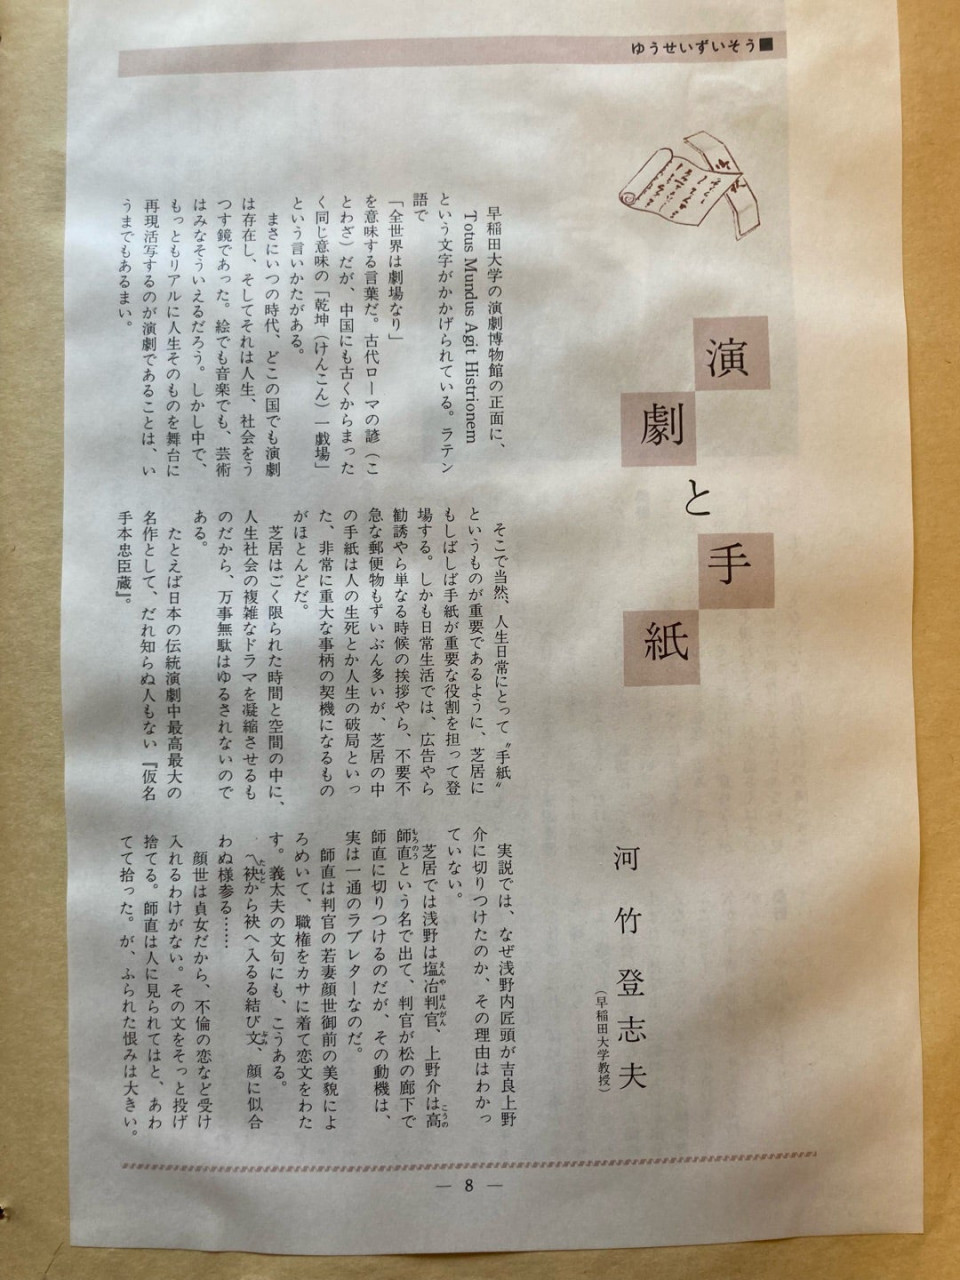 ゆうせいずいそう■
演劇と手紙
河竹登志夫
（早稲田大学教授）
早稲田大学の演劇博物館の正面に、
Totus Mundus Agit Histrionem
という文字がかかげられている。ラテン
語で
「全世界は劇場なり」
を意味する言葉だ。古代ローマの諺（こ
とわざ）だが、中国にも古くからまった
く同じ意味の「乾坤（けんこん）一戯場」
という言いかたがある。
まさにいつの時代、どこの国でも演劇
は存在し、そしてそれは人生、社会をう
つす鏡であった。絵でも音楽でも、芸術
はみなそういえるだろう。しかし中で、
もっともリアルに人生そのものを舞台に
再現活写するのが演劇であることは、い
うまでもあるまい。
そこで当然、人生日常にとって〝手紙〟
というものが重要であるように、芝居に
もしばしば手紙が重要な役割を担って登
場する。しかも日常生活では、広告やら
勧誘やら単なる時候の挨拶やら、不要不
急な郵便物もずいぶん多いが、芝居の中
の手紙は人の生死とか人生の破局といっ
た、非常に重大な事柄の契機になるもの
がほとんどだ。
芝居はごく限られた時間と空間の中に、
人生社会の複雑なドラマを凝縮させるも
のだから、万事無駄はゆるされないので
ある。
たとえば日本の伝統演劇中最高最大の
名作として、だれ知らぬ人もない『仮名
手本忠臣蔵』。
実説では、なぜ浅野内匠頭が吉良上野
介に切りつけたのか、その理由はわかっ
ていない。
芝居では浅野は塩冶判官、上野介は高
えんやはんがん
こうの
師直という名で出て、判官が松の廊下で
もろのう
師直に切りつけるのだが、その動機は、
実は一通のラブレターなのだ。
師直は判官の若妻顔世御前の美貌によ
ろめいて、職権をカサに着て恋文をわた
す。義太夫の文句にも、こうある。
〽袂から袂へ入るる結び文、顔に似合
たもと
ふみ
わぬ様参る……
顔世は貞女だから、不倫の恋など受け
入れるわけがない。その文をそっと投げ
捨てる。師直は人に見られてはと、あわ
てて拾った。が、ふられた恨みは大きい。
― 8 ―